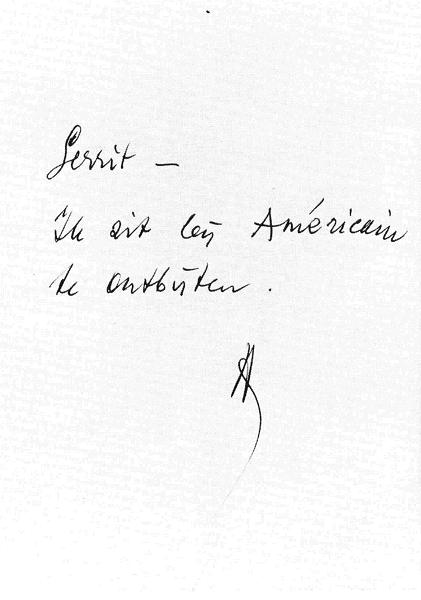 Gerrit —
Ik zit bij Américain
te ontbijten.
A